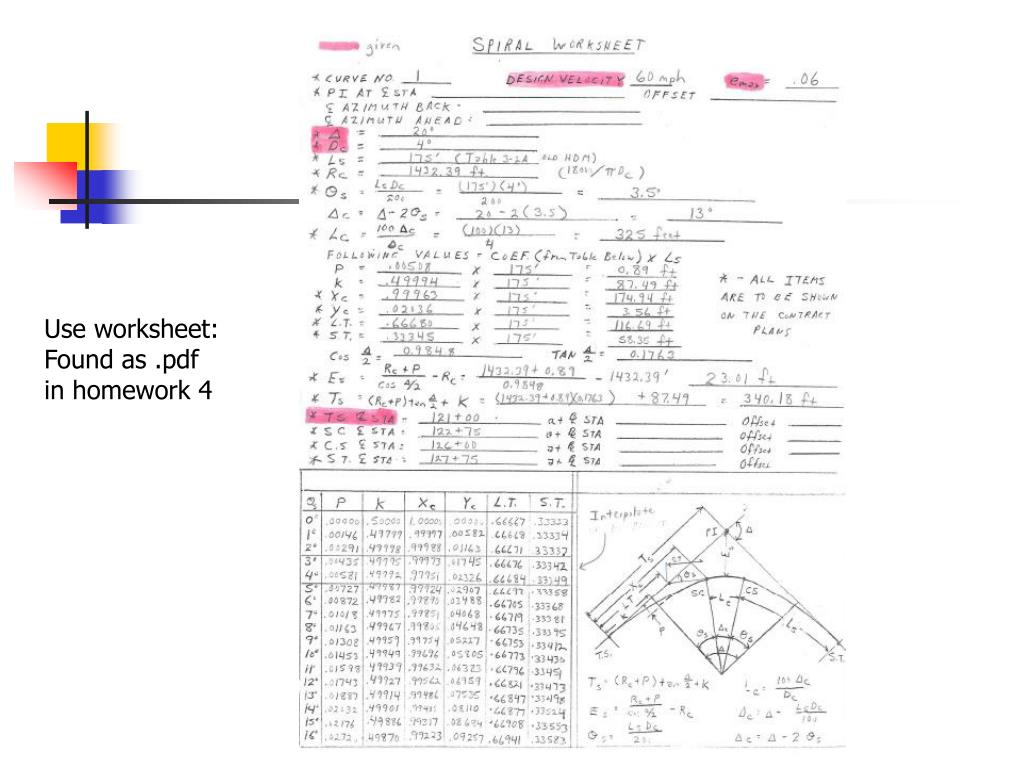 Use worksheet:
Found as .pdf
in homework 4
given SPIRAL WORKSHEET
* CURVE NO. 1 DESIGN VELOCITY 60 mph emax = .06
* PI AT ℄ STA OFFSET
℄ AZIMUTH BACK =
℄ AZIMUTH AHEAD =
* Δ = 20°
* Dc = 4°
* Ls = 175' (Table 3-2A OLD HDM)
* Rc = 1432.39 ft
* Θs = LsDc/200 = (175')(4°)/200 = 3.5°
Δc = Δ-2Θs = 20-2(3.5) = 13°
* Lc = 100 Δc/Dc = (100)(13)/4 = 325 feet
FOLLOWING VALUES = COEF. (from Table Below) X Ls
P = .00508 X 175' = 0.89 ft
K = .49994 X 175' = 87.49 ft
* Xc = .99963 X 175' = 174.94 ft
* Yc = .02036 X 175' = 3.56 ft
* L.T. = .66680 X 175' = 116.69 ft
* S.T. = .33345 X 175' = 58.35 ft
* - ALL ITEMS
ARE TO BE SHOWN
ON THE CONTRACT
PLANS
Cos Δ/2 = 0.9848 TAN Δ/2 = 0.1763
* Es = Rc+P/cos Δ/2 - Rc = 1432.39+0.89/0.9848 - 1432.39' 23.01 ft
* Ts = (Rc+P)tan Δ/2 + K = (1432.39+0.89)(0.1763) + 87.49 = 340.18 ft
* TS ℄ STA = 121+00 at ℄ STA Offset
* SC ℄ STA = 122+75 at ℄ STA Offset
* C.S ℄ STA: 126+00 at ℄ STA Offset
* S.T. ℄ STA: 127+75 at ℄ STA Offset
Θs P K Xc Yc L.T. S.T.
0° .00000 .50000 1.0000 .0000 .66667 .33333
1° .00146 .49999 .99997 .00582 .66668 .33334
2° .00291 .49998 .99988 .01163 .66671 .33337
3° .00435 .49995 .99973 .01745 .66676 .33342
4° .00581 .49992 .99951 .02326 .66684 .33349
5° .00727 .49987 .99924 .02907 .66693 .33358
6° .00872 .49982 .99890 .03488 .66705 .33368
7° .01018 .49975 .99851 .04068 .66719 .33381
8° .01163 .49967 .99805 .04648 .66735 .33395
9° .01308 .49959 .99754 .05227 .66753 .33412
10° .01453 .49949 .99696 .05805 .66773 .33430
11° .01598 .49939 .99632 .06383 .66796 .33451
12° .01743 .49927 .99562 .06959 .66821 .33473
13° .01887 .49914 .99486 .07535 .66847 .33498
14° .02032 .49901 .08110 .66877 .33524
15° .02176 .49886 .99317 .08684 .66908 .33553
16° .49870 .99223 .09257 .66941 .33583
Interpolate
PI Δ
Ts ST Es
Xc Θs SC Lc CS
L.T. K P Θs Δc Θs Ls
T.S. Δ S.T.
Ts = (Rc+P)tan Δ/2 + K Lc = 100 Δc/Dc
Es = Rc+P/cos Δ/2 - Rc Δc = Δ - LsDc/100
Θs = LsDc/200 Δc = Δ - 2 Θs